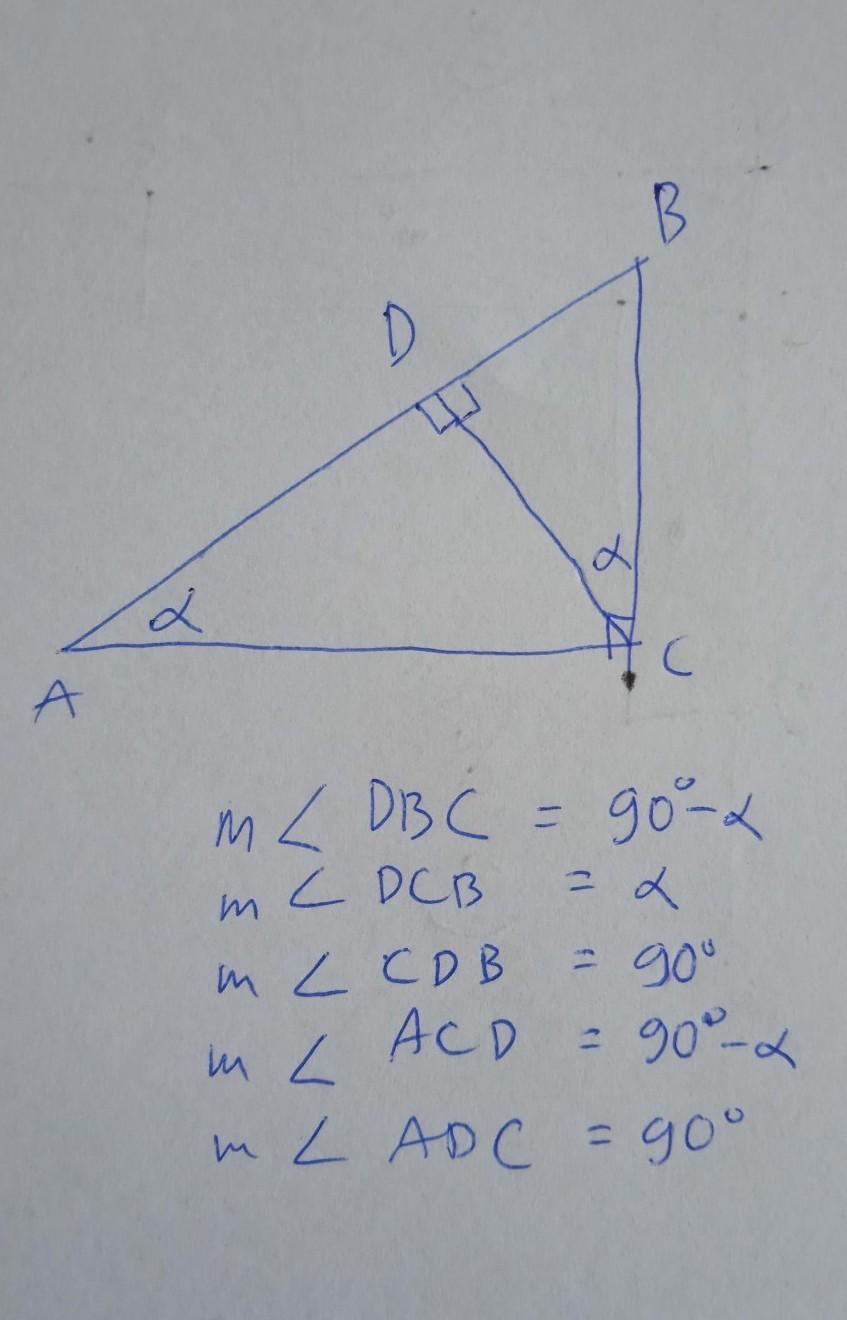 B
D
α
α
C
A
m∠ DBC = 90°-α
m∠ DCB = α
m∠ CDB = 90°
m∠ ACD = 90°-α
m∠ ADC = 90°